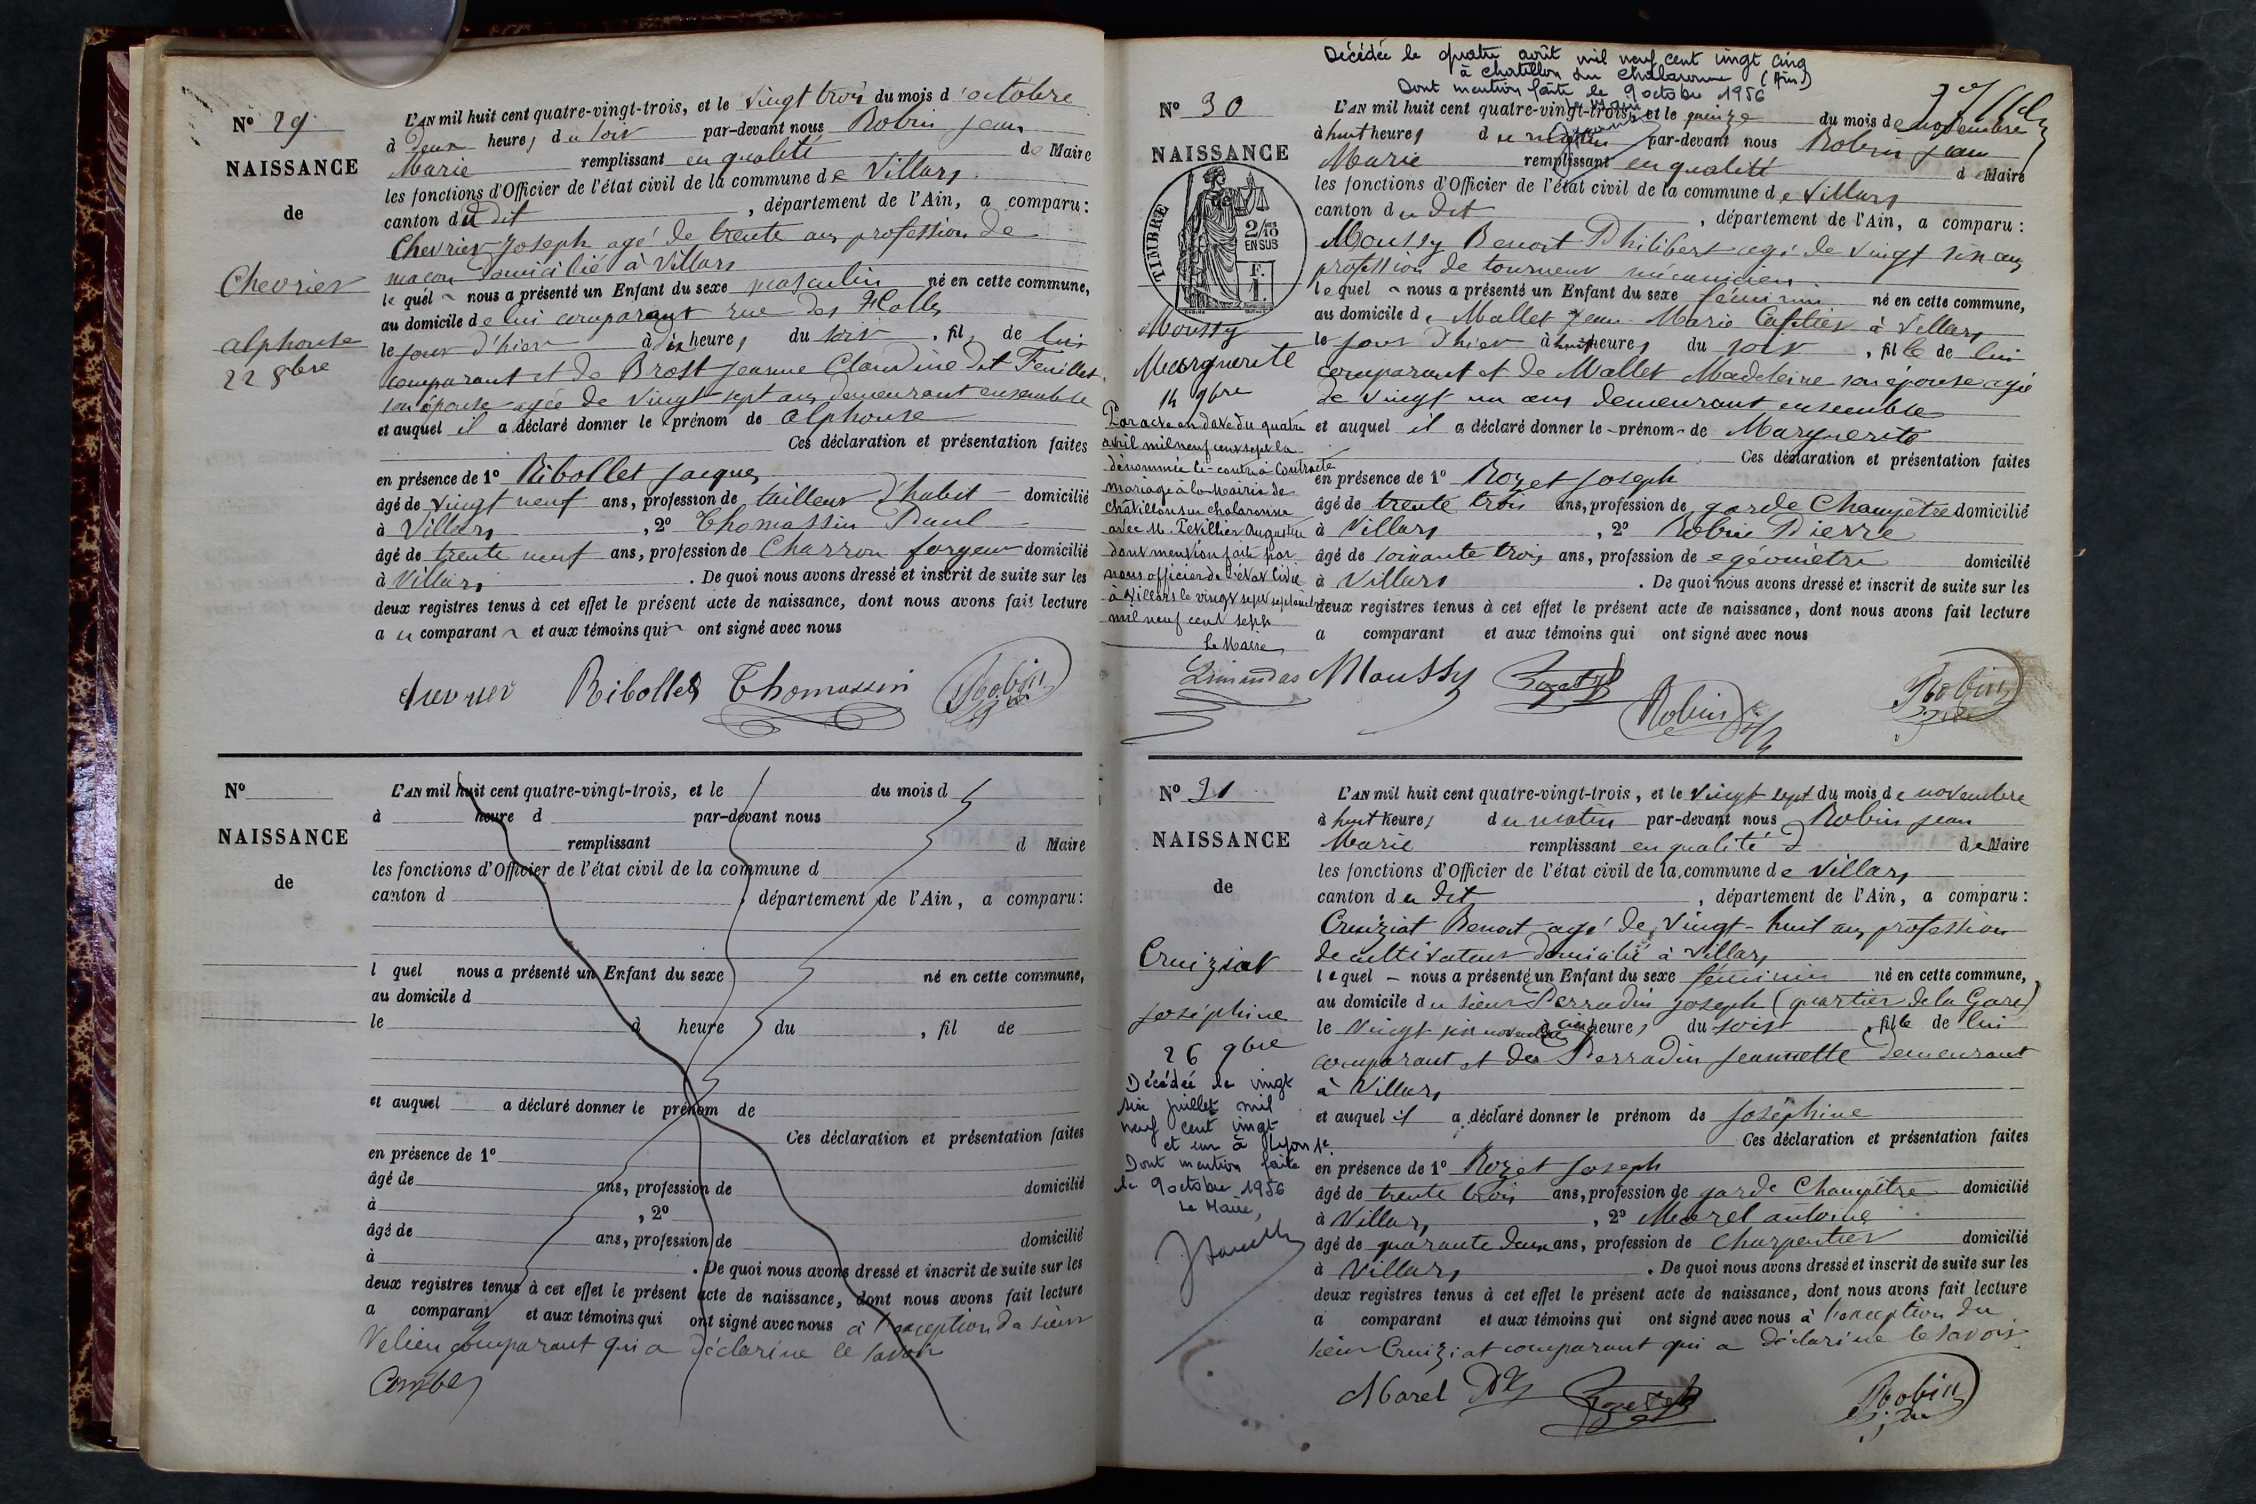 Nº 29
NAISSANCE
de
Chevrier
alphonse
22 8bre
L'AN mil huit cent quatre-vingt-trois, et le vingt trois du mois d'octobre
à deux heures du soir par-devant nous Robin Jean
Marie remplissant en qualité de Maire
les fonctions d'Officier de l'état civil de la commune de Villars
canton du dit, département de l'Ain, a comparu:
Chevrier Joseph agé de trente ans profession de
maçon domicilié à Villars
lequel nous a présenté un Enfant du sexe masculin né en cette commune,
au domicile de lui comparant rue des Halles
le jour d'hier à dix heures du soir, fils de lui
comparant et de Brost Jeanne Claudine dit Feuillet
son épouse agée de vingt sept ans demeurant ensemble
et auquel il a déclaré donner le prénom de alphonse
Ces déclaration et présentation faites
en présence de 1º Ribollet Jacques
âgé de vingt neuf ans, profession de tailleur d'habit domicilié
à Villars, 2º Thomassin Paul
âgé de trente neuf ans, profession de Charron forgeur domicilié
à Villars. De quoi nous avons dressé et inscrit de suite sur les
deux registres tenus à cet effet le présent acte de naissance, dont nous avons fait lecture
au comparant et aux témoins qui ont signé avec nous
Ribollet Thomassin Robin
Nº
NAISSANCE
de
L'AN mil huit cent quatre-vingt-trois, et le du mois d
à heure d par-devant nous
remplissant d Maire
les fonctions d'Officier de l'état civil de la commune d
canton d, département de l'Ain, a comparu:
l quel nous a présenté un Enfant du sexe né en cette commune,
au domicile d
le à heure du, fil de
et auquel a déclaré donner le prénom de
Ces déclaration et présentation faites
en présence de 1º
âgé de ans, profession de domicilié
à, 2º
âgé de ans, profession de domicilié
à. De quoi nous avons dressé et inscrit de suite sur les
deux registres tenus à cet effet le présent acte de naissance, dont nous avons fait lecture
a comparant et aux témoins qui ont signé avec nous à l'exception du sieur
Velien comparant qui a déclaré ne le savoir
Décédée le quatre août mil neuf cent vingt cinq
à chatillon sur chalaronne (Ain)
Dont mention faite le 9 octobre 1956
Le Maire
Nº 30
NAISSANCE
de
TIMBRE
2/10 EN SUS
F. 1.
Moussy
Marguerite
14 9bre
Par acte en date du quatre
avril mil neuf cent sept la
dénommée ci-contre a contracté
mariage à la Mairie de
Chatillon sur Chalaronne
avec M. Tévillier Augustin
dont mention faite par
nous officier de l'état civil
à Villars le vingt sept septembre
mil neuf cent sept
Le Maire
L'AN mil huit cent quatre-vingt-trois, et le quinze du mois de novembre
à huit heures du matin par-devant nous Robin Jean
Marie remplissant en qualité de Maire
les fonctions d'Officier de l'état civil de la commune de Villars
canton du dit, département de l'Ain, a comparu:
Moussy Benoit Philibert agé de vingt six ans
profession de tourneur mécanicien
lequel nous a présenté un Enfant du sexe féminin né en cette commune,
au domicile de Mallet Jean Marie Cafetier à Villars
le jour d'hier à huit heures du soir, fille de lui
comparant et de Mallet Madeleine son épouse agée
de vingt un ans demeurant ensemble
et auquel il a déclaré donner le prénom de Marguerite
Ces déclaration et présentation faites
en présence de 1º Rozet Joseph
âgé de trente trois ans, profession de garde Champêtre domicilié
à Villars, 2º Robin Pierre
âgé de soixante trois ans, profession de géomètre domicilié
à Villars. De quoi nous avons dressé et inscrit de suite sur les
deux registres tenus à cet effet le présent acte de naissance, dont nous avons fait lecture
a comparant et aux témoins qui ont signé avec nous
Moussy Rozet Robin Robin
Nº 31
NAISSANCE
de
Cruiziat
Joséphine
26 9bre
Décédée le vingt
six juillet mil
neuf cent vingt
et un à Lyon 1e.
Dont mention faite
le 9 octobre 1956
Le Maire,
L'AN mil huit cent quatre-vingt-trois, et le vingt sept du mois de novembre
à huit heures du matin par-devant nous Robin Jean
Marie remplissant en qualité d de Maire
les fonctions d'Officier de l'état civil de la commune de Villars
canton du dit, département de l'Ain, a comparu:
Cruiziat Benoit agé de vingt-huit ans profession
de cultivateur domicilié à Villars
lequel nous a présenté un Enfant du sexe féminin né en cette commune,
au domicile du sieur Perradin Joseph (quartier de la Gare)
le vingt six novembre à cinq heures du soir, fille de lui
comparant et de Perradin Jeannette demeurant
à Villars
et auquel il a déclaré donner le prénom de Joséphine
Ces déclaration et présentation faites
en présence de 1º Rozet Joseph
âgé de trente trois ans, profession de garde Champêtre domicilié
à Villars, 2º Morel antoine
âgé de quarante deux ans, profession de Charpentier domicilié
à Villars. De quoi nous avons dressé et inscrit de suite sur les
deux registres tenus à cet effet le présent acte de naissance, dont nous avons fait lecture
a comparant et aux témoins qui ont signé avec nous à l'exception du
sieur Cruiziat comparant qui a déclaré ne le savoir
Morel Rozet Robin